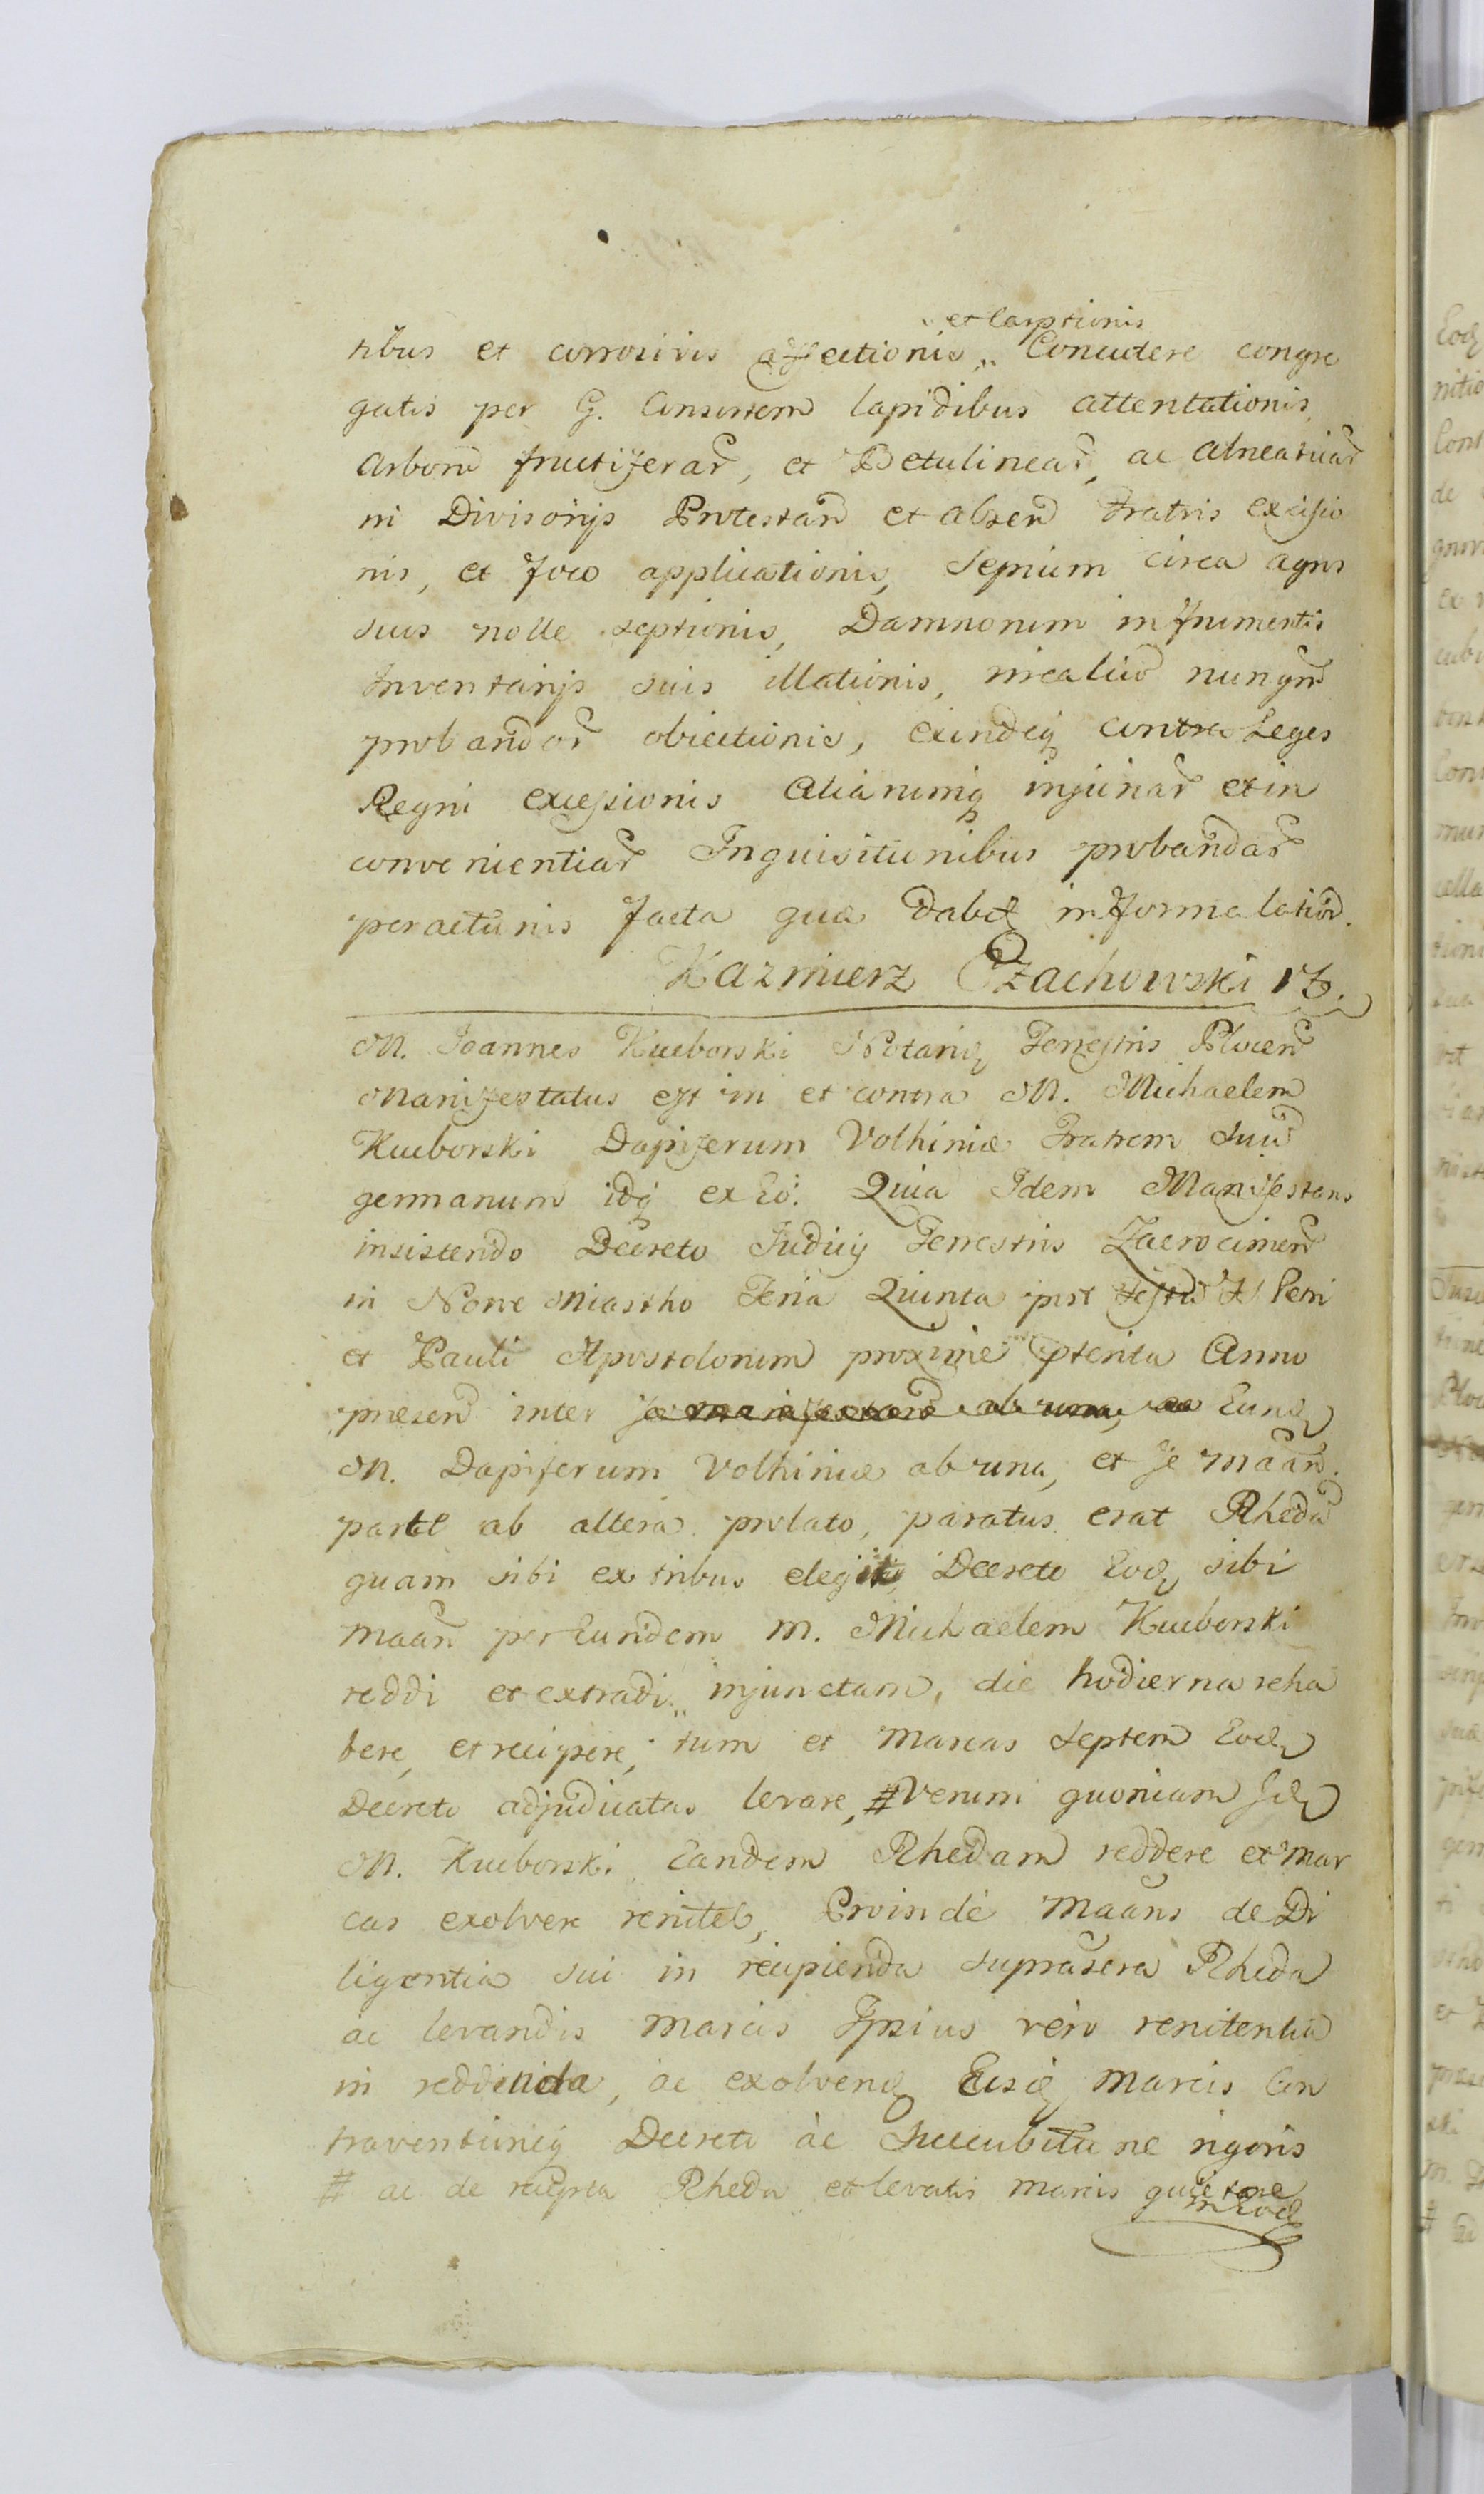 et Captionis
tibus et corrosivis affectionis, Concutere congre
gatis per G. Consortem lapidibus attentationis
Arborū fructiferar̄, et Betulinear̄, ac alneatıar̄
in Divisorijs Protestan̄ et absen̄ Fratris excisio
nis, et foco applicationis, Sepium circa agros
suis nolle septionis, Damnorum in frumentis
Inventarijs suis illationis, nunqm̄
probandor̄ obiectionis, exindeq contra Leges
Regni excessionis Aliarumq injuriar̄ et in
convenientiar̄ Inquisitionibus probandar̄
peractionis facta qua dabit in forma latiōr.
Kazmierz Czachowski
M. Joannes Kucborski Notariq Terrestris Plocen̄
Manifestatus est in et contra M. Michaelem
Kucborski Dapiferum Volhiniæ Fratrem Suū
germanum idq ex Eo: Quia Idem Manifestans
insistendo Decreto Judicij Terrestris Zacrocimen̄
in Nowe Miastho Feria Quinta post Festū S Petri
et Pauli Apostolorum proxime pterita Anno
præsen̄ inter se manifestan̄ ab una, ac Eund
M. Dapiferum Volhiniæ ab una, et se māan̄.
parte ab altera prolato, paratus erat Rhedā
quam sibi ex tribus elegit, Decreto Eod sibi
Māan̄ per Eundem M. Michaelem Kucborski
reddi et extradi injunctam, die hodierna reha
bere, et recipere, tum et Marcas Septem Eod
Decreto adjudicatas levare, # Verum quoniam Id
M. Kucborski Eandem Rhedam reddere et Mar
cas exolvere renitet, Proinde Māans de Di
ligentia sui in recipienda suprasc̄ra Rheda
ac levandis Marcis Ipsius vero renitentia
in reddenda, ac exolvend Eisd Marcis Con
traventioneq Decreto ac Succubitione rigoris
# ac de recepta Rheda et levatis marcis quietare
in Eod